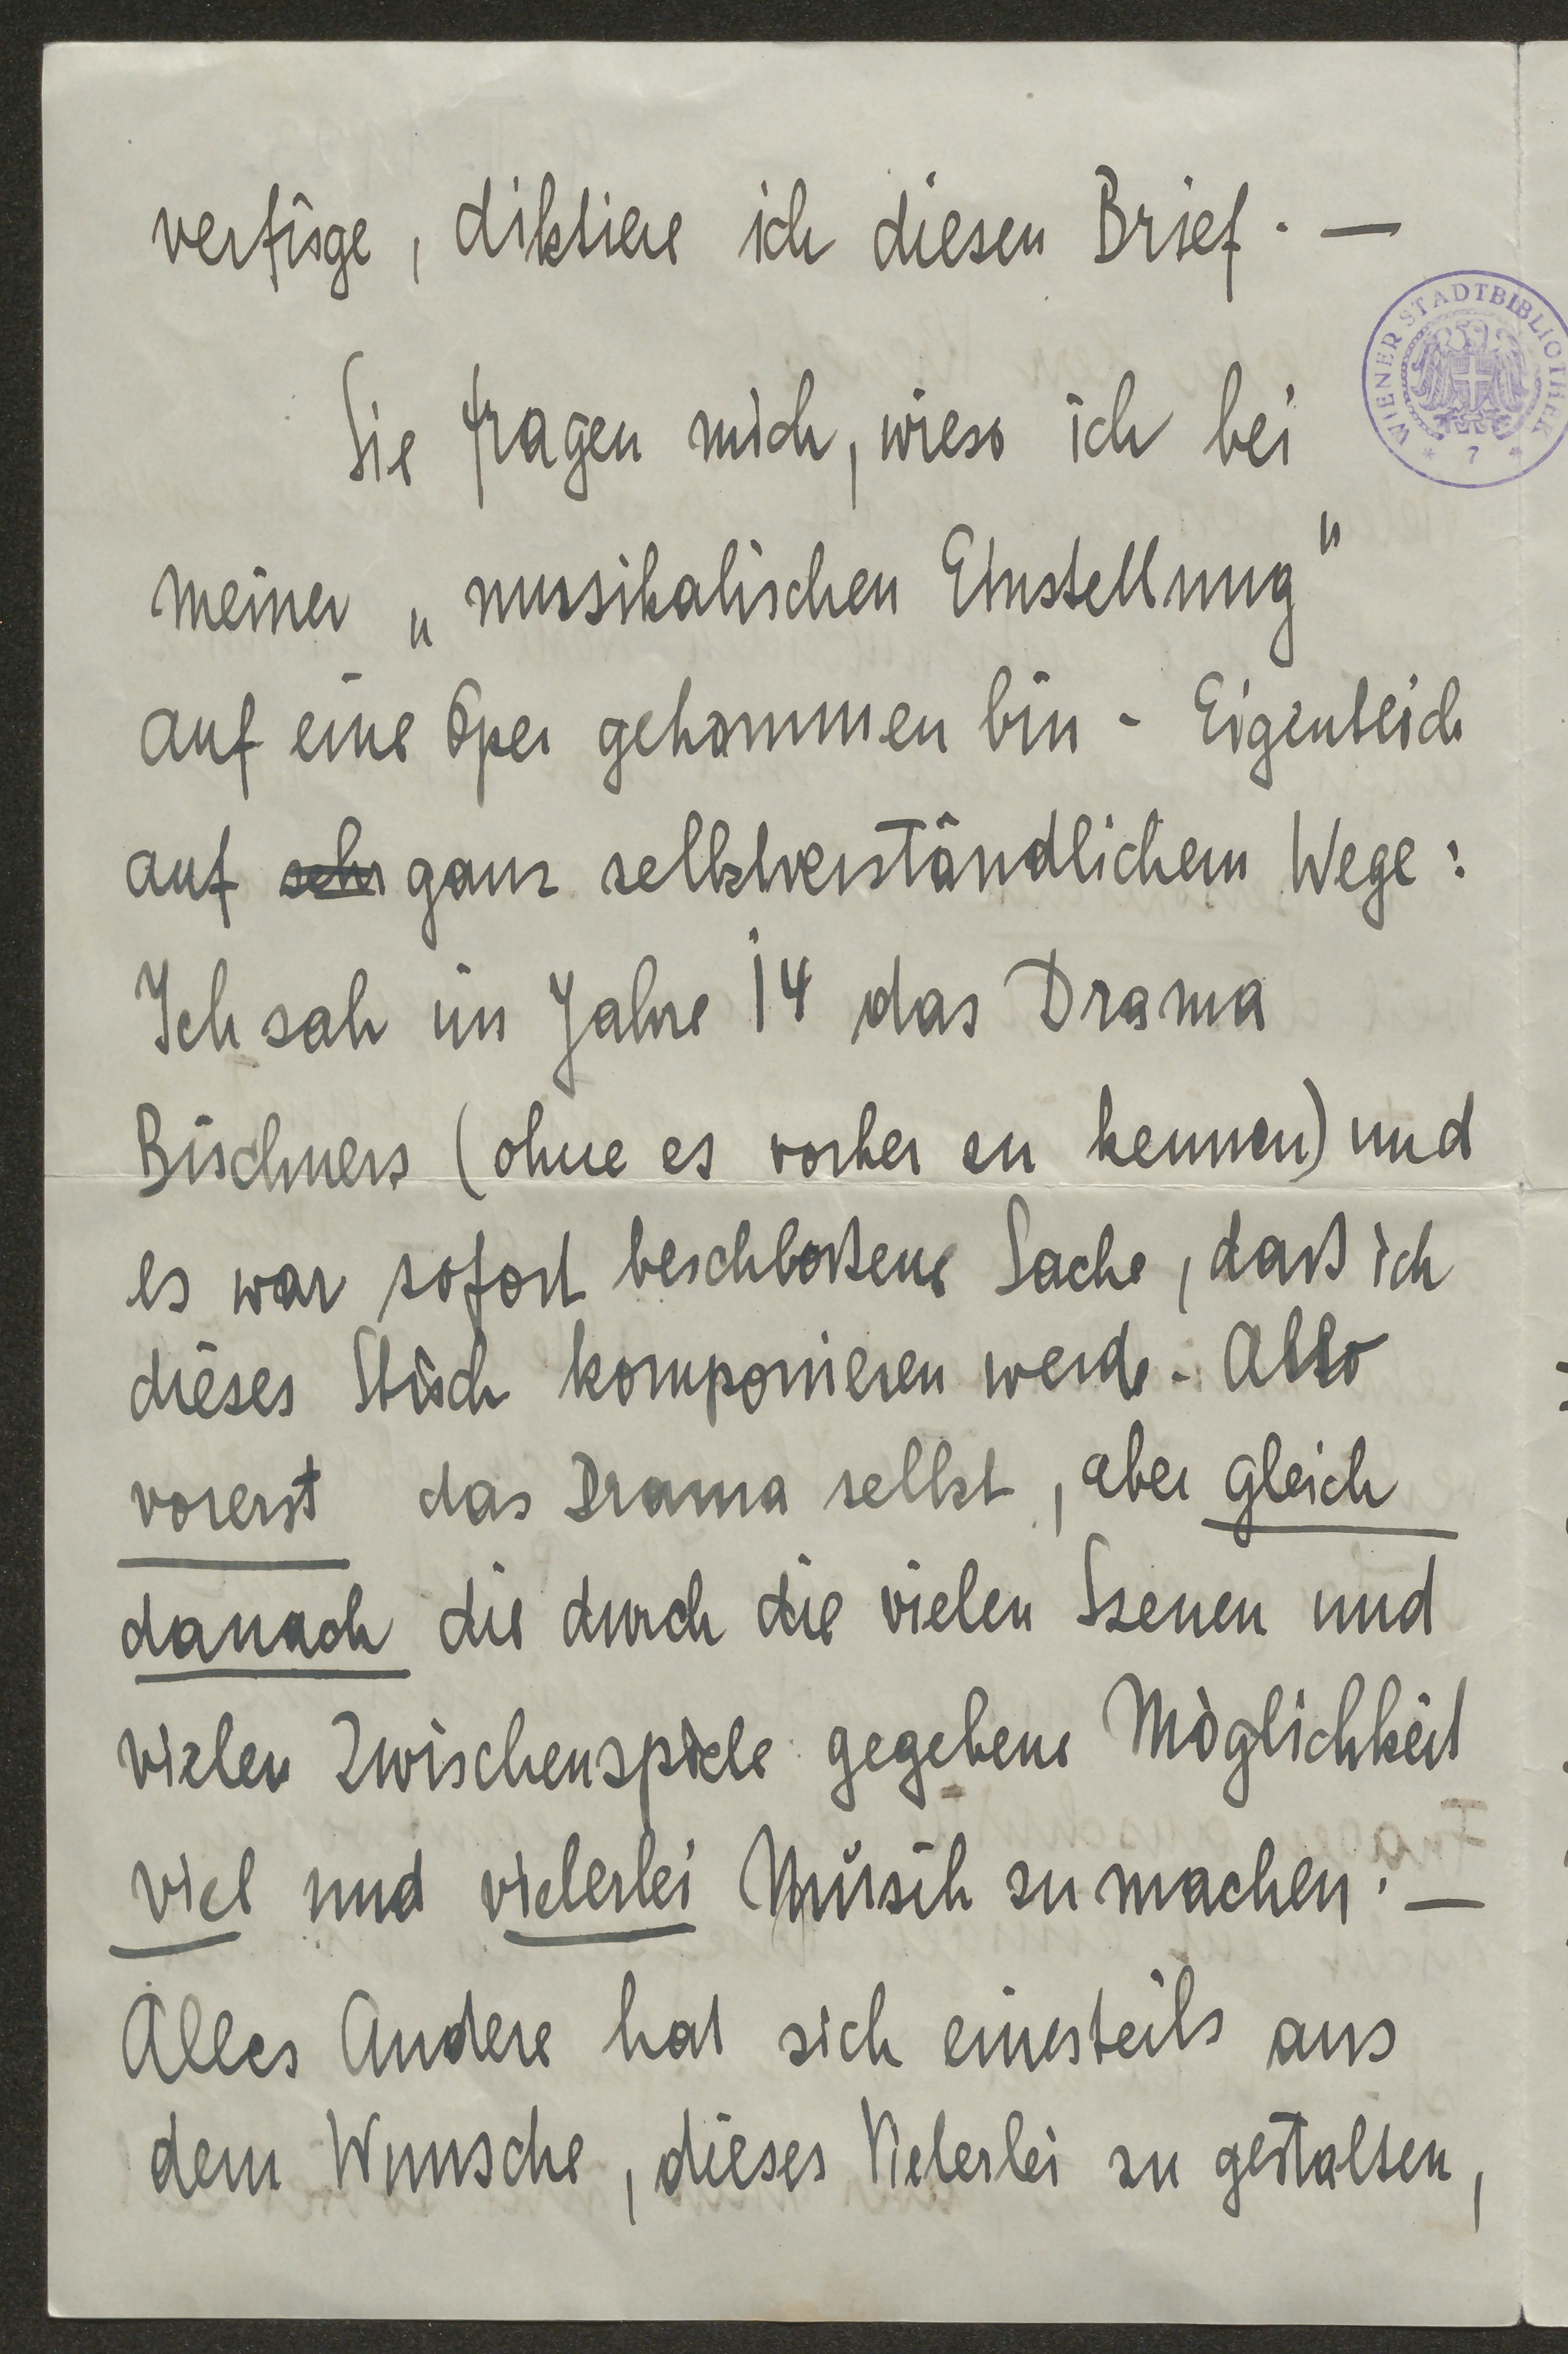 verfüge, diktiere ich diesen Brief. —
WIENER STADTBIBLIOTHEK * 7 *
Sie fragen mich, wieso ich bei
meiner „musikalischen Einstellung"
auf eine Oper gekommen bin - Eigentlich
auf sehr ganz selbstverständlichem Wege:
Ich sah im Jahre 14 das Drama
Büchners (ohne es vorher zu kennen) und
es war sofort beschloßene Sache, daß ich
dieses Stück komponieren werde. Also
vorerst das Drama selbst, aber gleich
danach die durch die vielen Szenen und
vielen Zwischenspiele gegebene Möglichkeit
viel und vielerlei Musik zu machen. —
Alles Andere hat sich einesteils aus
dem Wunsche, dieses Vielerlei zu gestalten,